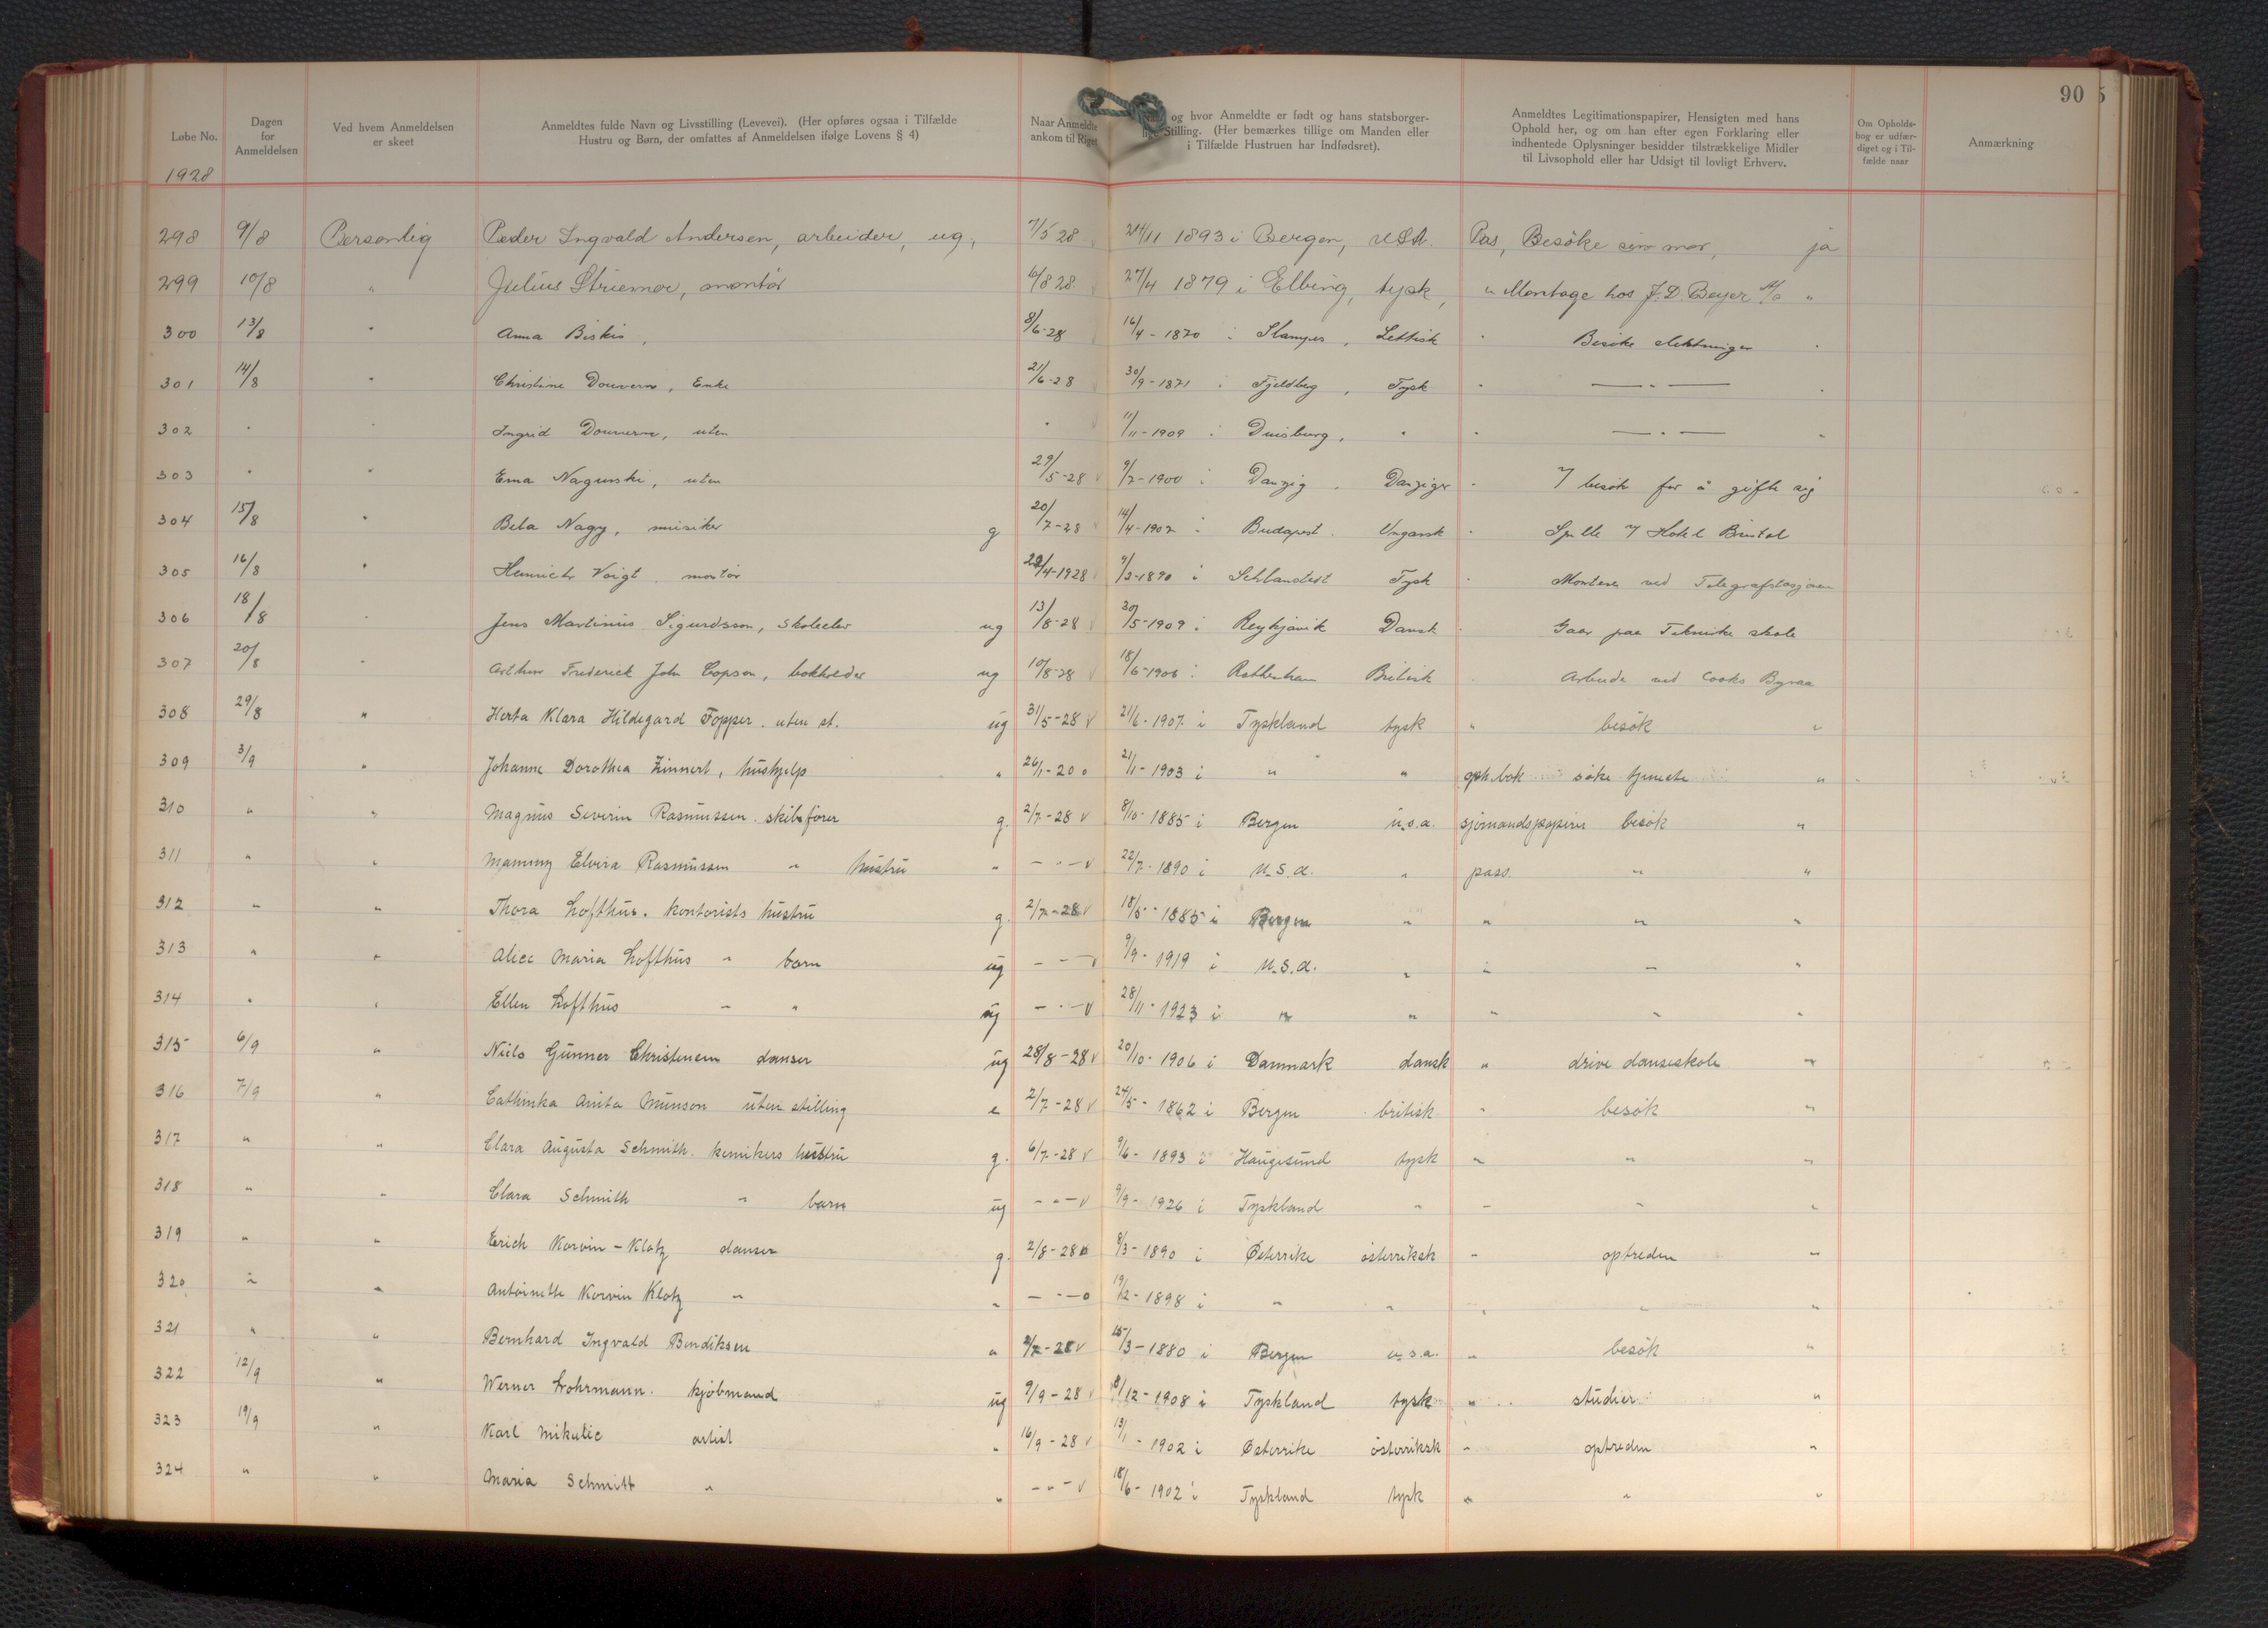 90 5
Løbe No.
Dagen for Anmeldelsen
Ved hvem Anmeldelsen er skeet
Anmeldtes fulde Navn og Livsstilling (Levevei). (Her opføres ogsaa i Tilfælde Hustru og Børn, der omfattes af Anmeldelsen ifølge Lovens § 4)
Naar Anmeldte ankom til Riget
og hvor Anmeldte er født og hans statsborger- Stilling. (Her bemærkes tillige om Manden eller i Tilfælde Hustruen har Indfødsret).
Anmeldtes Legitimationspapirer, Hensigten med hans Ophold her, og om han efter egen Forklaring eller indhentede Oplysninger besidder tilstrækkelige Midler til Livsophold eller har Udsigt til lovligt Erhverv.
Om Opholds- bog er udfær- diget og i Til- fælde naar
Anmærkning
1928
298 9/8 Personlig Peder Ingvald Andersen, arbeider, ug, 7/5 28 24/11 1893 i Bergen, USA. Pas, Besöke sin mor, ja
299 10/8 " Julius Striemer, montör 6/8 28 27/4 1879 i Elbing, tysk, " Montage hos F.D. Beyer A/S "
300 13/8 " Anna Biskis, 8/6-28 16/4-1870 i , Lettisk " Besöke slektninger "
301 14/8 " Christine Douverne, Enke 21/6-28 30/9-1871 i Fjeldberg, Tysk " — " — "
302 " " Ingrid Douverne, uten " 11/11-1909 i Duisburg, " " — " — "
303 " " Erna Nagurski, uten 29/5-28 9/2-1900 i Danzig, Danziger " besök for å gifte sig
304 15/8 " Bela Nagy, musiker g 20/7-28 14/4-1902 i Budapest. Ungarsk " Spille Hotel Bristol
305 16/8 " Heinrich Voigt, montör 22/4-1928 9/3-1890 i Tysk " Montere ved Telegrafstasjonen
306 18/8 " Jens Martinius Sigurdsson, skoleelev ug 13/8-28 30/5-1909 i Reykjavik Dansk " Gaar paa Tekniske skole
307 20/8 " Arthur Frederick John Copson, bokholder ug 10/8-28 18/6-1906 i Britisk " Arbeide ved Cooks Byraa
308 29/8 " Herta Klara Hildegard Fopper. uten st. ug 31/5-28 v 21/6-1907 i Tyskland tysk " besök "
309 3/9 " Johanne Dorothea Zinnert, hushjelp " 26/1-20 o 21/1-1903 i " " oph.bok söke tjeneste "
310 " " Magnus Severin Rasmussen. skibsförer g. 2/7-28 v 8/10-1885 i Bergen u.s.a. sjömandspapirer besök "
311 " " Mammy Elvira Rasmussen " hustru " — " — v 22/7-1890 i U.S.A. " pass. " "
312 " " Thora Lofthus. kontorists hustru g. 2/7-28 v 18/5-1885 i Bergen " " " "
313 " " Alice Maria Lofthus " barn ug — " — v 9/9-1919 i U.S.A. " " " "
314 " " Ellen Lofthus " " ug — " — v 28/11-1923 i " " " " "
315 6/9 " Niels Gunner Christensen danser ug 28/8-28 v 20/10-1906 i Danmark dansk " drive danseskole "
316 7/9 " Cathinka Anita Munson uten stilling e 2/7-28 v 24/5-1862 i Bergen britisk " besök "
317 " " Clara Augusta Schmith. kemikers hustru g. 6/7-28 v 9/6-1893 i Haugesund tysk " " "
318 " " Clara Schmith " barn ug — " — v 9/9-1926 i Tyskland " " " "
319 " " Erich Korvin-Klotz danser g. 2/8-28 o 8/3-1890 i Østerrike österriksk " optreden "
320 " " Antoinette Korvin Klotz " " — " — o 19/2-1898 i " " " " "
321 " " Bernhard Ingvald Bendiksen " 2/7-28 v 15/3-1880 i Bergen u.s.a. " besök "
322 12/9 " Werner Lohrmann. kjöbmand ug 9/9-28 v 8/12-1908 i Tyskland tysk " studier "
323 19/9 " Karl Mikulic artist " 16/9-28 v 13/1-1902 i Østerrike österriksk " optreden "
324 " " Maria Schmitt " " — " — v 18/6-1902 i Tyskland tysk " " "